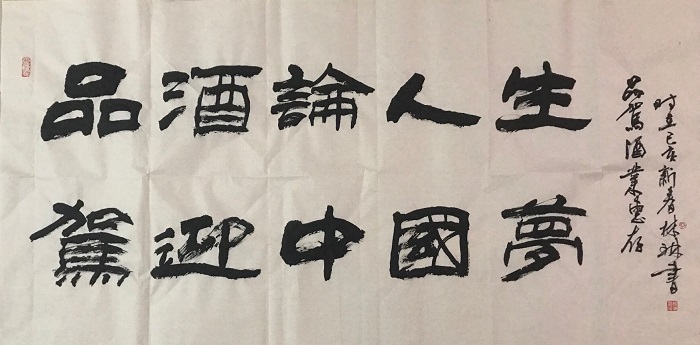 品酒論人生
駕迎中國夢
品駕酒業惠存
时在己亥新春林琳書